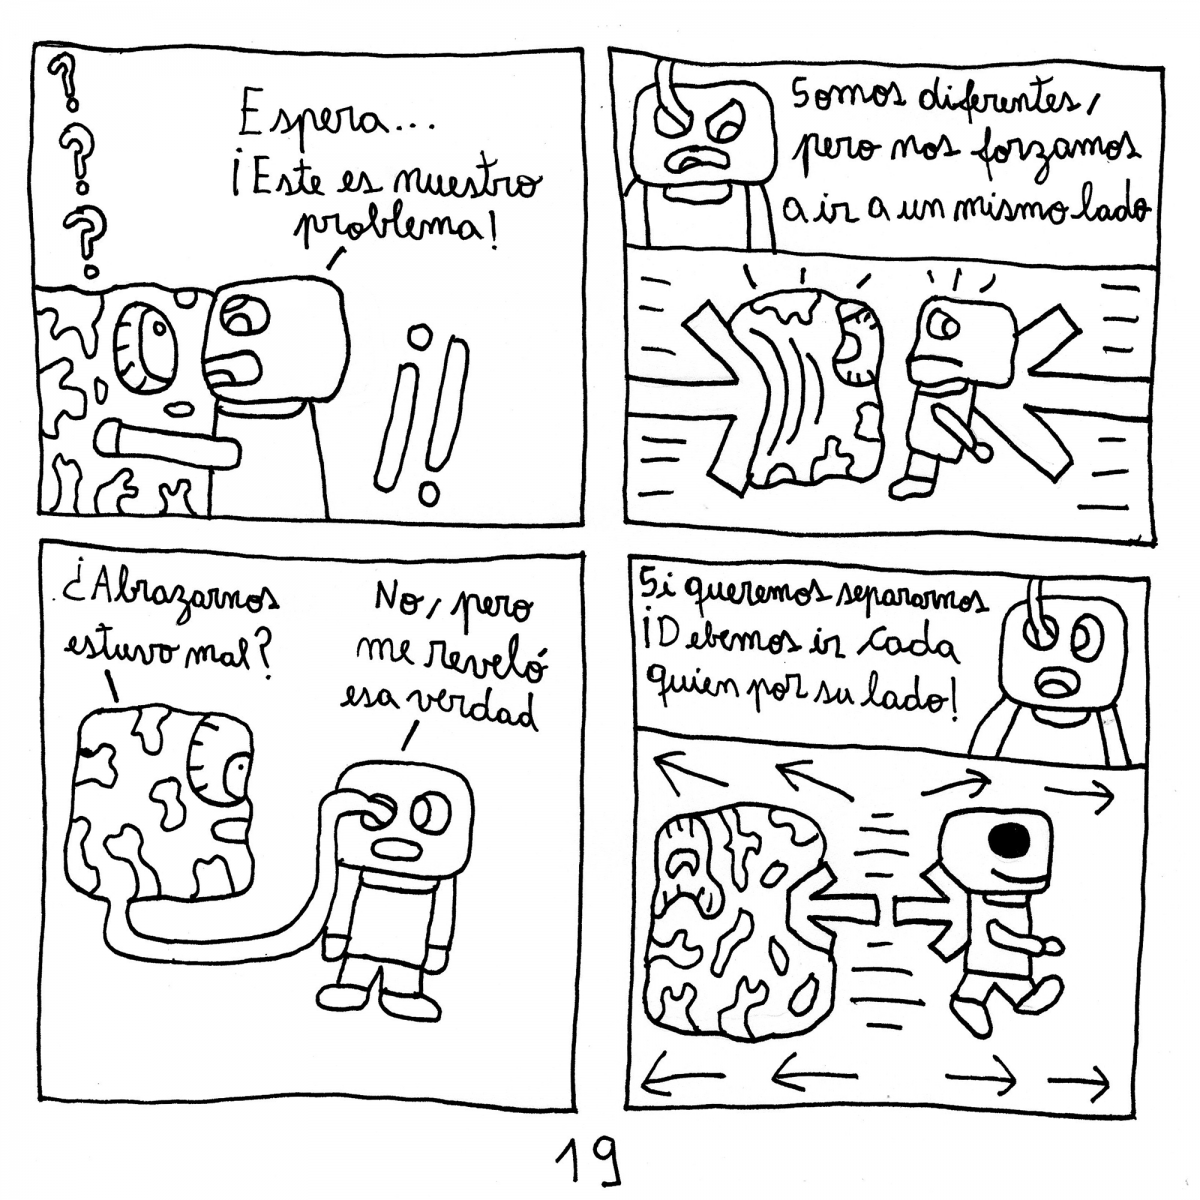 ?
?
?
Espera...
¡Este es nuestro
problema!
¡!
Somos diferentes,
pero nos forzamos
a ir a un mismo lado
¿Abrazarnos
estuvo mal?
No, pero
me reveló
esa verdad
Si queremos separarnos
¡Debemos ir cada
quien por su lado!
19